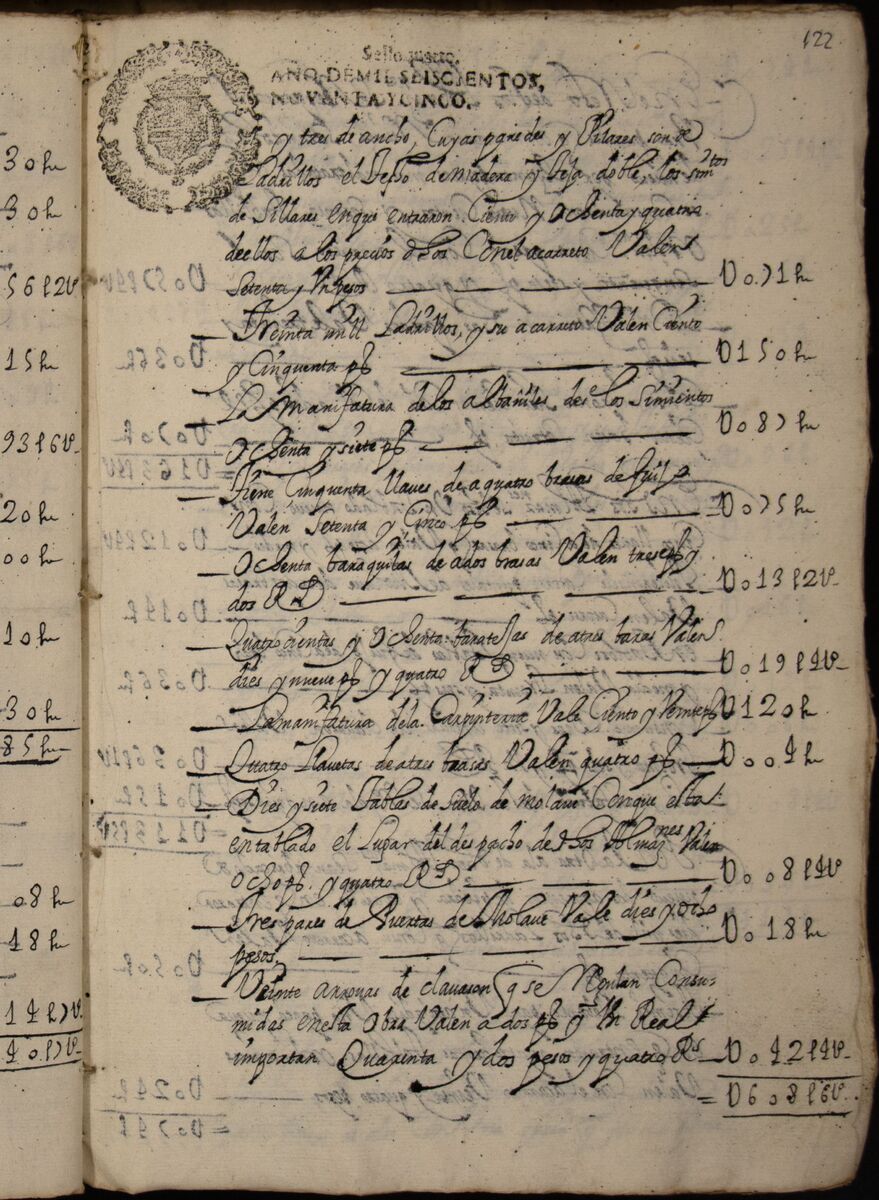 122
Sello quarto,
AÑO DE MIL SEISCIENTOS,
NOVENTA Y CINCO.
y tres de ancho, Cuyas paredes y Pilares son de
Ladrillos el Techo de madera y teja doble, los sim.tos
de Sillares en que entraron Ciento y Ochenta y quatro
de ellos a los precios dhos Con el acarreto Valen
Setenta y Un pesos U071 p
Treinta mill Ladrillos, y su acarreto Valen Ciento
y Cinquenta ps U150 p
La manifatura de los albañiles de los Simientos
Ochenta y siete ps U087 p
Tiene Cinquenta llaves de a quatro brasas
Valen Setenta y Cinco ps U075 p
Ochenta baraquilas de a dos brasas Valen trese ps y
dos Rs U013 p 2 U
Quatrocientas y Ochenta baratejas de a tres baras Valen
dies y nueve ps y quatro Rs U019 p 4 U
La manifatura de la Carpinteria Vale Ciento y Veinte ps U120 p
Quatro Llavetas de a tres brasas Valen quatro ps U004 p
Dies y siete Tablas de Suelo de molave Con que esta
entablado el Lugar del despacho de dhos Almaz.nes Valen
Ocho ps. y quatro Rs U008 p 4 U
Tres pares de Puertas de Molave Vale dies y ocho
pesos. U018 p
Veinte arrovas de clavason q se Regulan Consu-
midas en esta Obra Valen a dos ps y Un Real
importan Quarenta y dos pesos y quatro Rs U042 p 4 U
= U608 p 6 U